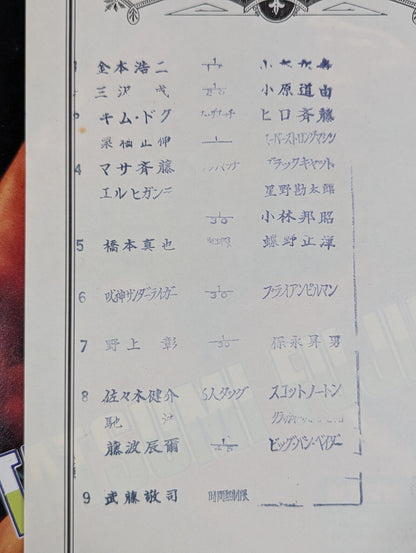 金本浩二
三沢 威 小原道由
キム・ドク タッグマッチ ヒロ斉藤
栗栖正伸 1 スーパーストロングマシン
4 マサ斉藤 ブラックキャット
エルヒガンテ 星野勘太郎
1/30 小林邦昭
5 橋本真也 蝶野正洋
6 獣神サンダーライガー 1/30 フライアンピルマン
7 野上 彰 1/30 保永昇男
8 佐々木健介 6人タッグ スコットノートン
馳 浩
藤波辰爾 1/45 ビッグバン・ベイダー
9 武藤敬司 時間無制限